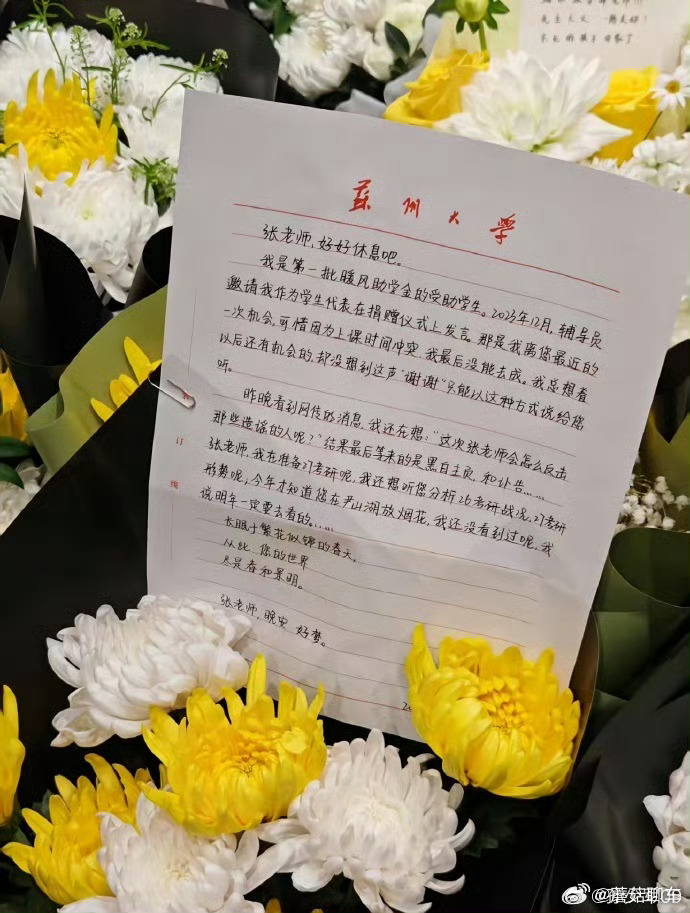 先生大义 一路走好！
苏州大学
张老师，好好休息吧。
我是第一批暖风助学金的受助学生。2023年12月，辅导员
邀请我作为学生代表在捐赠仪式上发言。那是我离您最近的
一次机会，可惜因为上课时间冲突，我最后没能去成。我总想着
以后还有机会的，却没想到这声“谢谢”只能以这种方式说给您
听。
昨晚看到网传的消息，我还在想：“这次张老师会怎么反击
那些造谣的人呢？”结果最后等来的是黑白主页，和讣告……
张老师，我在准备27考研呢，我还想听您分析26考研战况、27考研
形势呢，今年才知道您在尹山湖放烟花，我还没看到过呢，我
说明年一定要去看的……
长眠于繁花似锦的春天，
从此，您的世界
尽是春和景明。
张老师，晚安 好梦。
订
线
@蘑菇聊车